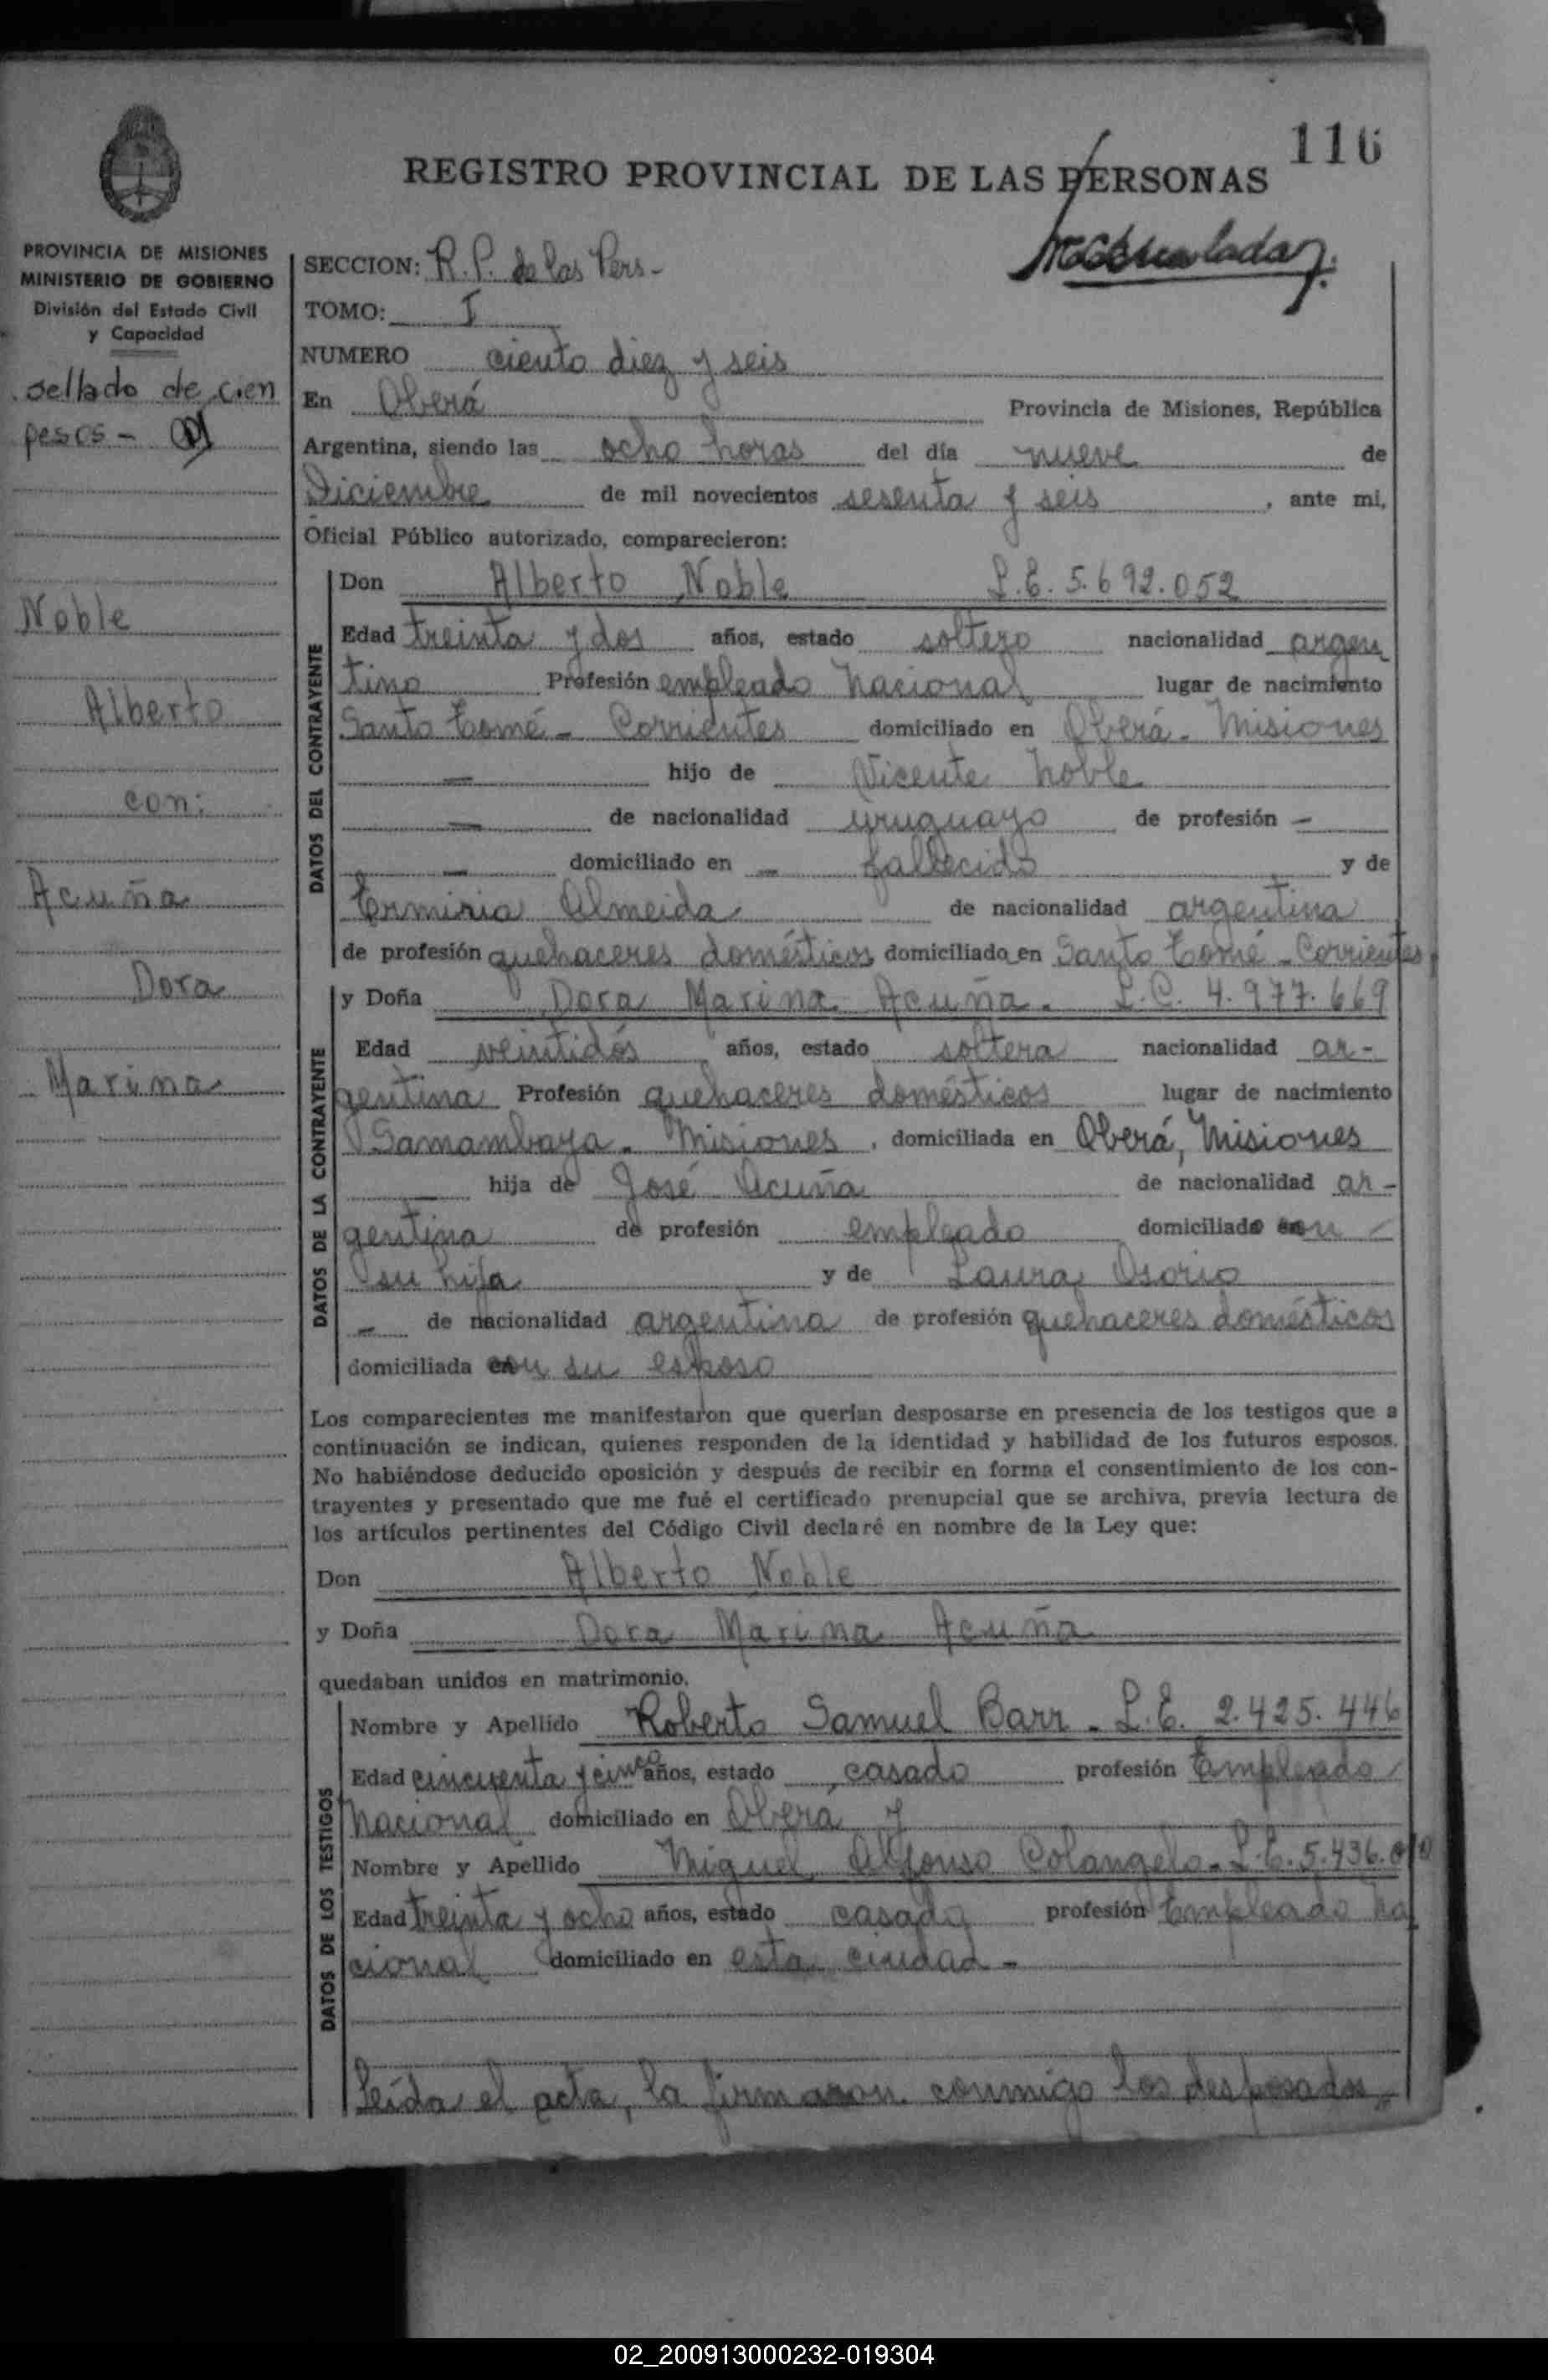 116
REGISTRO PROVINCIAL DE LAS PERSONAS
PROVINCIA DE MISIONES
MINISTERIO DE GOBIERNO
División del Estado Civil
y Capacidad
sellado de cien
pesos -
Noble
Alberto
con:
Acuña
Dora
Marina
SECCION: R. P. de las Pers-
TOMO: I
NUMERO ciento diez y seis
En Oberá Provincia de Misiones, República
Argentina, siendo las ocho horas del día nueve de
Diciembre de mil novecientos sesenta y seis, ante mi,
Oficial Público autorizado, comparecieron:
DATOS DEL CONTRAYENTE
Don Alberto Noble L.E. 5.692.052
Edad treinta y dos años, estado soltero nacionalidad argen
tino Profesión empleado Nacional lugar de nacimiento
Santo Tomé - Corrientes domiciliado en Oberá - Misiones
— hijo de Vicente Noble
— de nacionalidad uruguayo de profesión —
— domiciliado en — fallecido y de
Erminia Almeida de nacionalidad argentina
de profesión quehaceres domésticos domiciliado en Santo Tomé - Corrientes
DATOS DE LA CONTRAYENTE
y Doña Dora Marina Acuña. L.C. 4.977.669
Edad veintidós años, estado soltera nacionalidad ar-
gentina Profesión quehaceres domésticos lugar de nacimiento
Samambaya - Misiones, domiciliada en Oberá, Misiones
— hija de José Acuña de nacionalidad ar-
gentina de profesión empleado domiciliado con
su hija y de Laura Osorio
— de nacionalidad argentina de profesión quehaceres domésticos
domiciliada con su esposo
Los comparecientes me manifestaron que querían desposarse en presencia de los testigos que a
continuación se indican, quienes responden de la identidad y habilidad de los futuros esposos.
No habiéndose deducido oposición y después de recibir en forma el consentimiento de los con-
trayentes y presentado que me fué el certificado prenupcial que se archiva, previa lectura de
los artículos pertinentes del Código Civil declaré en nombre de la Ley que:
Don Alberto Noble
y Doña Dora Marina Acuña
quedaban unidos en matrimonio.
DATOS DE LOS TESTIGOS
Nombre y Apellido Roberto Samuel Barr - L.E. 2.425.446
Edad cincuenta y cinco años, estado casado profesión Empleado
Nacional domiciliado en Oberá y
Nombre y Apellido Miguel Alfonso Colangelo - L.E. 5.436.
Edad treinta y ocho años, estado casado profesión Empleado Na
cional domiciliado en esta ciudad -
Leída el acta, la firmaron conmigo los desposados,
02_200913000232-019304